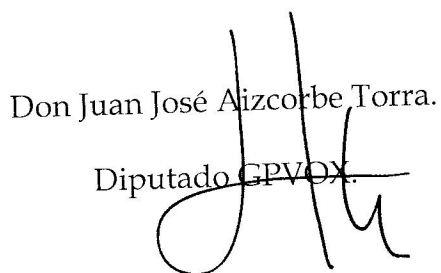 Don Juan José Aizcorbe Torra.
Diputado GPVOX.